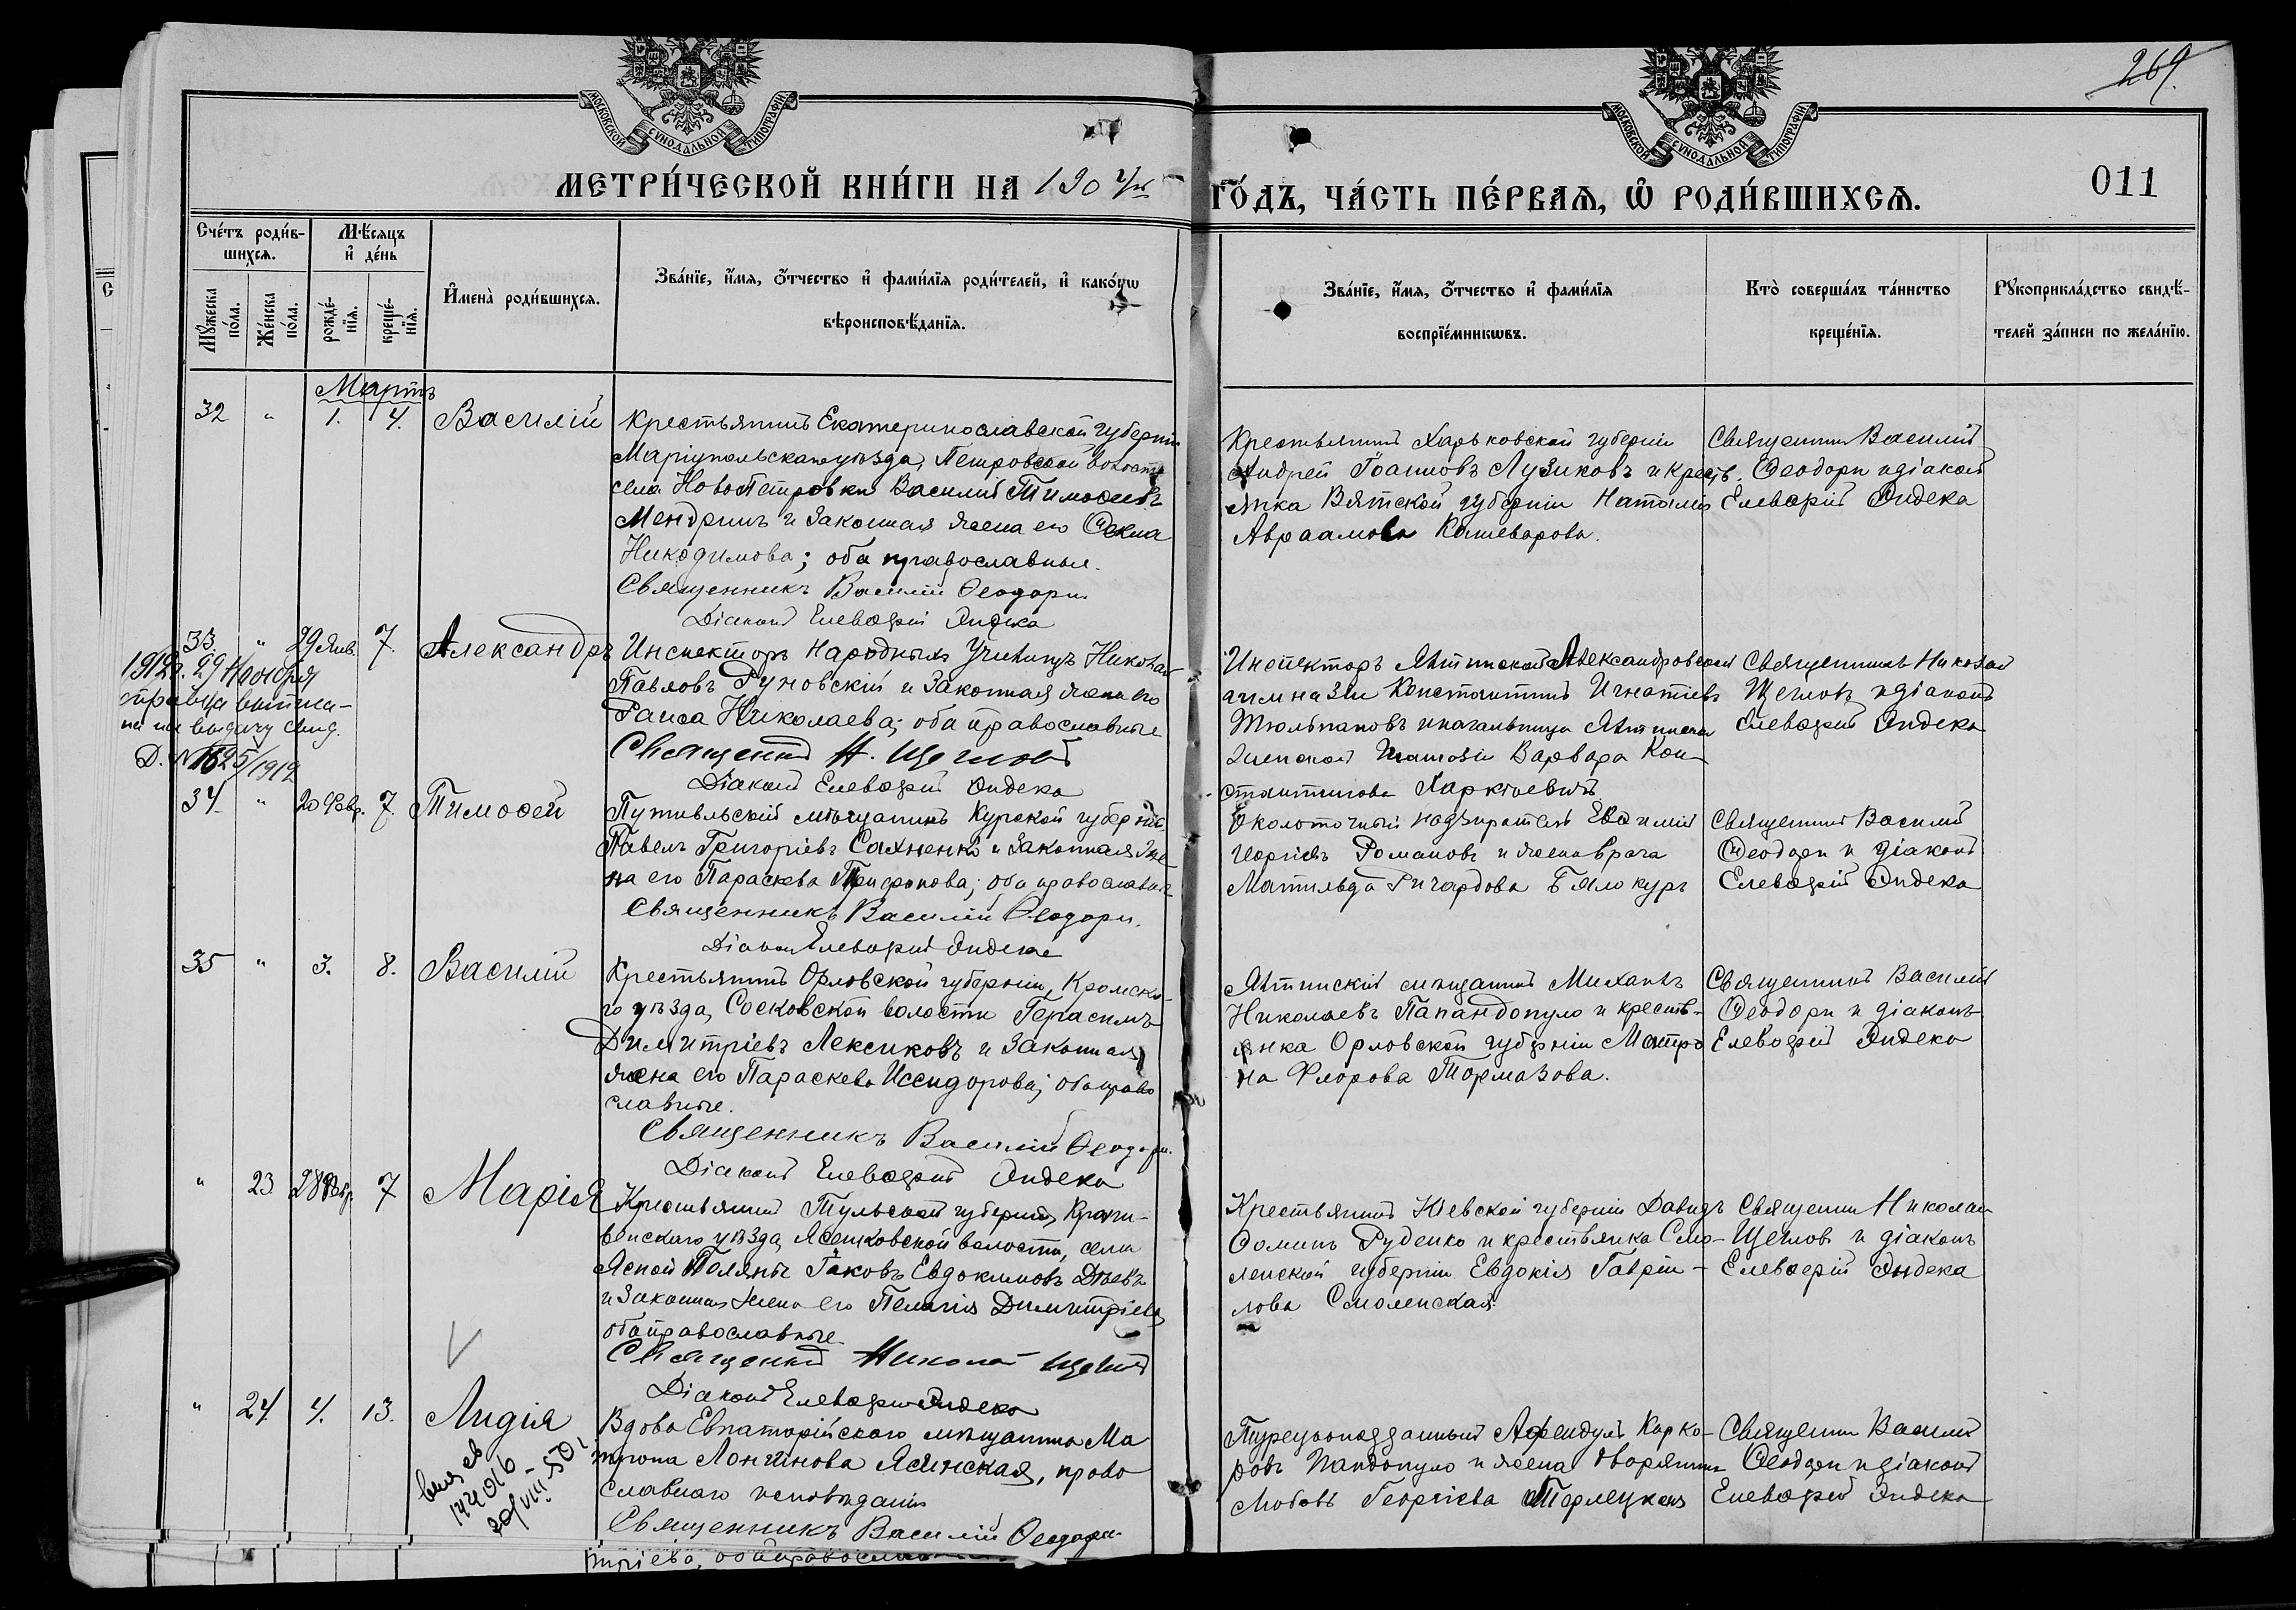 269.
011
МОСКОВСКОЙ СѴНОДАЛЬНОЙ ТИПОГРАФІИ
МОСКОВСКОЙ СѴНОДАЛЬНОЙ ТИПОГРАФІИ
МЕТРИ́ЧЕСКОЙ КНИ́ГИ НА 1904й ГО́ДЪ, ЧА́СТЬ ПЕ́РВАѦ, Ѽ РОДИ́ВШИХСѦ.
Сче́тъ роди́в-
шихсѧ.
Мꙋжеска по́ла.
Же́нска по́ла.
Мѣ́сѧцъ
и҆ де́нь
рожде́-
нїѧ.
креще́-
нїѧ.
И҆мена̀ роди́вшихсѧ.
Зва́нїе, и҆́мѧ, ѻ҆́тчество и҆ фами́лїѧ роди́телей, и҆ како́гѡ
вѣроисповѣ́данїѧ.
Зва́нїе, и҆́мѧ, ѻ҆́тчество и҆ фами́лїѧ
воспрїе́мникѡвъ.
Кто̀ соверша́лъ та́инство
креще́нїѧ.
Рꙋкоприкла́дство свидѣ́-
телей за́писи по жела́нїю.
Мартъ
32 " 1. 4. Василій
Крестьянинъ Екатеринославской губерніи
Маріупольскаго уѣзда, Петровской волости
села НовоПетровки Василій Тимоѳеевъ
Мендринъ и законная жена его Ѳекла
Никодимова; оба православные.
Священникъ Василій Ѳеодори
Діаконъ Елевѳерій Ѳндека
Крестьянинъ Харьковской губерніи
Андрей Іоанновъ Лузиковъ и кресть-
янка Вятской губерніи Наталія
Авраамова Кашеварова.
Священникъ Василій
Ѳеодори и діаконъ
Елевѳерій Ѳндека
33. " 29 Янв. 7. Александръ
1912г. 29 Ноября
справка выписа-
на на выдачу свид.
Д. № 1625/1912
Инспекторъ Народныхъ Училищъ Николай
Павловъ Руновскій и законная жена его
Раиса Николаева; оба православные
Священникъ Н. Щегловъ
Діаконъ Елевѳерій Ѳндека
Инспекторъ Ялтинской Александровской
гимназіи Константинъ Игнатіевъ
Тюльпановъ и начальница Ялтинской
Женской Гимназіи Варвара Кон-
стантинова Харкіевичъ
Священникъ Николай
Щегловъ и діаконъ
Елевѳерій Ѳндека
34 " 20 Февр. 7. Тимоѳей
Путивльскій мѣщанинъ Курской губерніи
Павелъ Григоріевъ Сахненко и законная же-
на его Параскева Трифонова; оба православные
Священникъ Василій Ѳеодори.
Діаконъ Елевѳерій Ѳндека
Околоточный надзиратель Евѳимій
Георгіевъ Романовъ и жена врача
Матильда Ричардова Бѣлокуръ
Священникъ Василій
Ѳеодори и діаконъ
Елевѳерій Ѳндека
35 " 3. 8. Василій
Крестьянинъ Орловской губерніи, Кромска-
го уѣзда, Сосковской волости Герасимъ
Димитріевъ Лексиковъ и законная
жена его Параскева Исидорова; оба право
славные.
Священникъ Василій Ѳеодори.
Діаконъ Елевѳерій Ѳндека
Ялтинскій мѣщанинъ Михаилъ
Николаевъ Папандопуло и кресть-
янка Орловской губерніи Матро
на Флорова Тормазова.
Священникъ Василій
Ѳеодори и діаконъ
Елевѳерій Ѳндека
" 23 28 Февр. 7 Марія
Крестьянинъ Тульской губерніи, Крапи-
венскаго уѣзда, Ясенковской волости, села
Ясной Поляны Іаковъ Евдокимовъ Дѣевъ
и законная жена его Пелагія Димитріева
оба православные.
Священникъ Николай Щегловъ
Діаконъ Елевѳерій Ѳндека
Крестьянинъ Кіевской губерніи Давидъ
Ѳоминъ Руденко и крестьянка Смо-
ленской губерніи Евдокія Гавріи-
лова Смоленская.
Священникъ Николай
Щегловъ и діаконъ
Елевѳерій Ѳндека
" 24 4. 13. Лидія
144016
20/VIII-50
Вдова Евпаторійскаго мѣщанина Ма
трона Лонгинова Ясинская, право
славнаго исповѣданія
Священникъ Василій Ѳеодори
Турецкоподданный Афендулъ Карко-
ровъ Пандопуло и жена дворянина
Любовь Георгіева Терлецкая
Священникъ Василій
Ѳеодори и діаконъ
Елевѳерій Ѳндека
тріева, оба православные